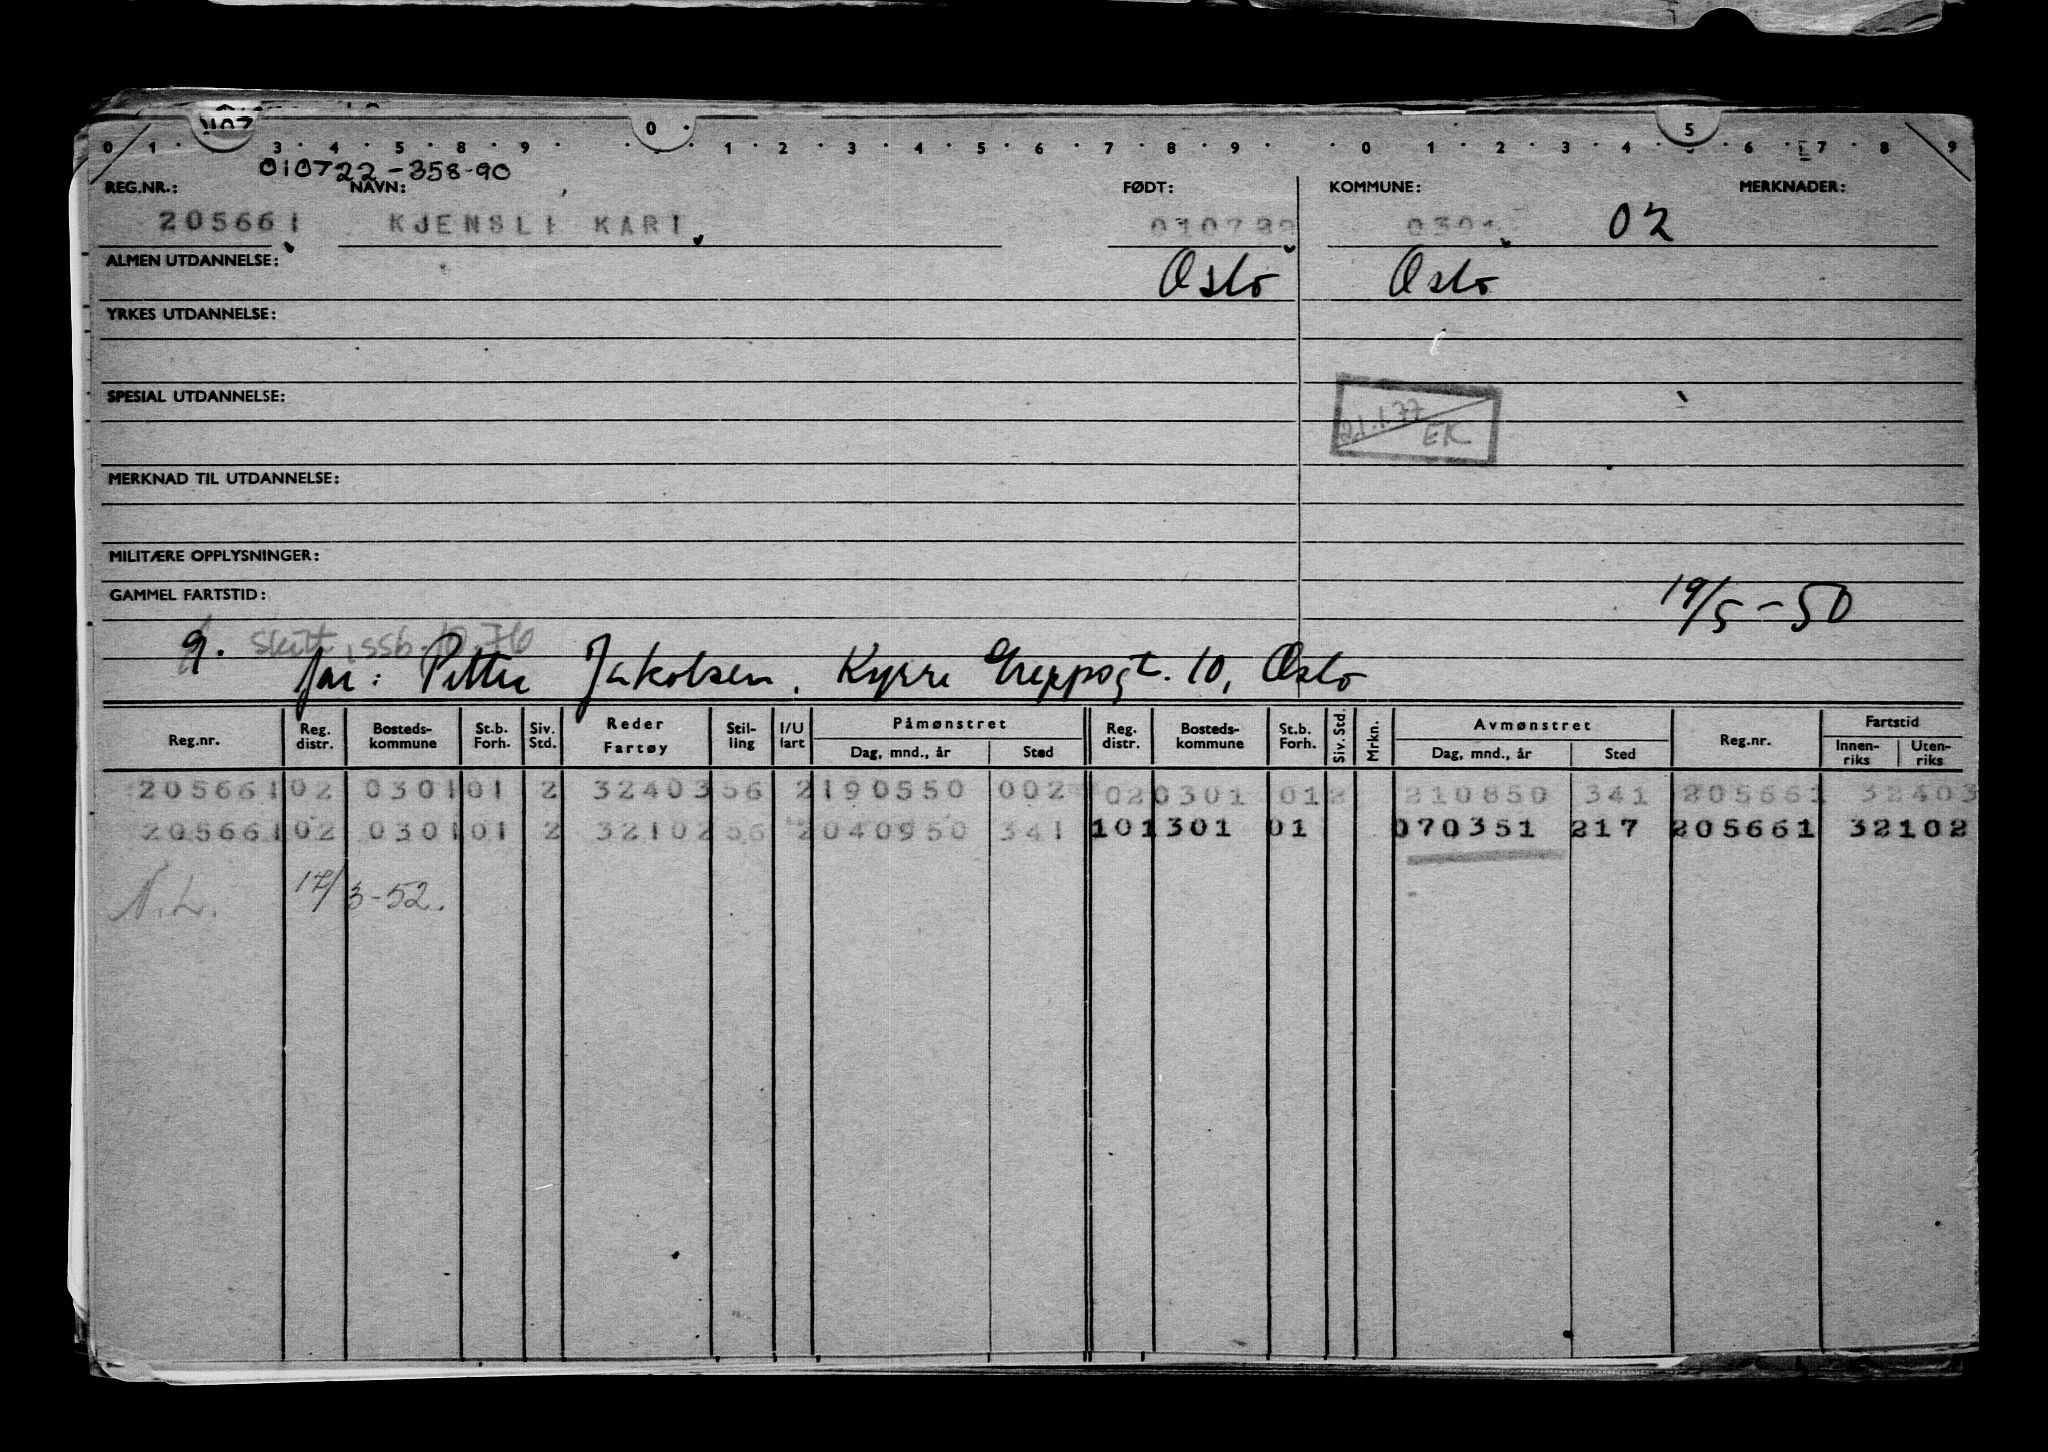 0 5
0 1 3 4 5 8 9 1 2 3 4 5 6 7 8 9 0 1 2 3 4 6 7 8 9
010722-358-90
REG.NR.: NAVN: FØDT: KOMMUNE: MERKNADER:
205661 KJENSLI KARI 010722 0301 02
ALMEN UTDANNELSE: Oslo Oslo
YRKES UTDANNELSE:
SPESIAL UTDANNELSE:
21.1.77 EK
MERKNAD TIL UTDANNELSE:
MILITÆRE OPPLYSNINGER:
GAMMEL FARTSTID: 19/5-50
g. skilt, ssb. 10.76
far: Petter Jakobsen, Kyrre Greppsgt. 10, Oslo
Reg.nr. Reg. distr. Bosteds-kommune St.b. Forh. Siv. Std. Reder Fartøy Stil-ling I/U fart Påmønstret Dag, mnd., år Sted Reg. distr. Bosteds-kommune St.b. Forh. Siv. Std. Mrkn. Avmønstret Dag, mnd., år Sted Reg.nr. Fartstid Innen-riks Uten-riks
205661 02 0301 01 2 32403 56 2 190550 002 02 0301 01 2 210850 341 205661 32403
205661 02 0301 01 2 32102 56 2 040950 341 101301 01 070351 217 205661 32102
N.L. 17/3-52.